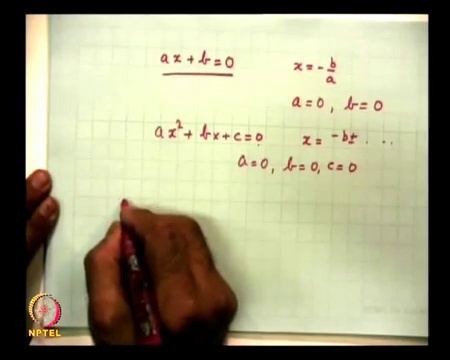 ax + b = 0 x = - b/a
a = 0, b = 0
ax² + bx + c = 0 x = -b± ...
a = 0, b = 0, c = 0
NPTEL